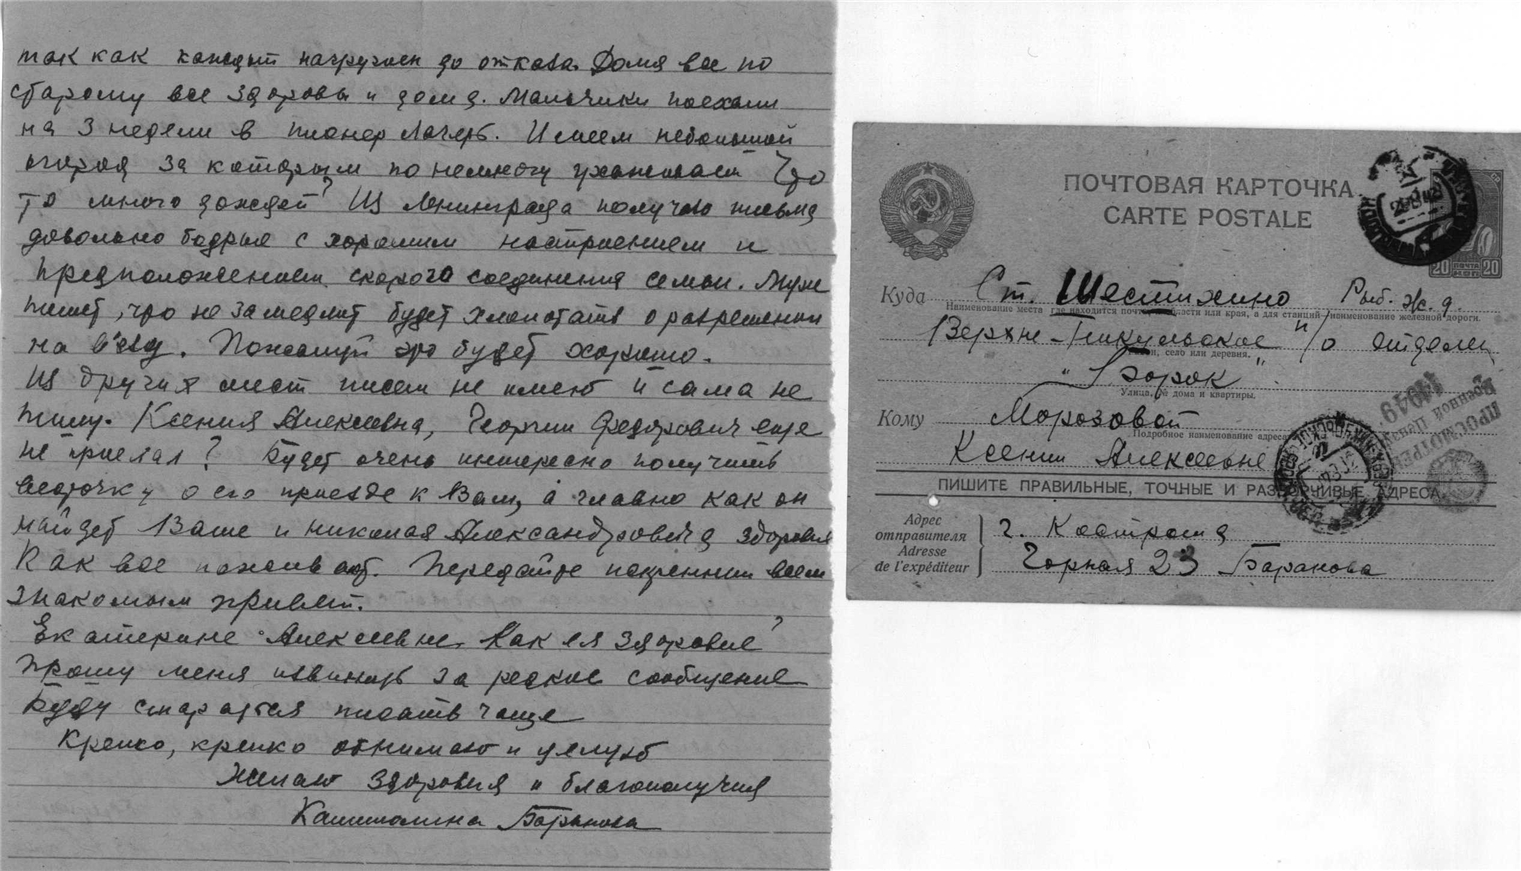 так как каждый нагружен до отказа. Дома все по
старому все здоровы и дома. Мальчики поехали
на 3 недели в пионер лагерь. Имеем небольшой
огород за которым по немногу ухаживаем
то много дождей? Из Ленинграда получаю письма
довольно бодрые с хорошим настроением и
предположением скорого соединения семьи. Муж
пишет, что не замедлит будет хлопотать о разрешении
на в'езд. Пожалуй это будет хорошо.
Из других мест писем не имею и сама не
пишу. Ксения Алексеевна, Георгий Федорович еще
не приехал? Будет очень интересно получить
весточку о его приезде к Вам, а главно как он
найдет Ваше и Николая Александровича здоровья
Как все поживают. Передайте искренний всем
знакомым привет.
Екатерине Алексеевне. Как ея здоровье?
Прошу меня извинить за редкие сообщение
Буду старатся писать чаще
Крепко, крепко обнимаю и целую
Желаю здоровья и благополучия
Баранова
ПОЧТОВАЯ КАРТОЧКА
CARTE POSTALE
20 ПОЧТА 20
Куда Ст. Шестихино Рыб. ж. д.
Наименование места, где находится почта, области или края, а для станций наименование железной дороги.
Верхне-Никульское п/о отделен
село или деревня,
"Борок"
Улица, № дома и квартиры.
Кому Морозовой
Подробное наименование адреса
Ксении Алексеевне
ПРОСМОТРЕНО
Военной Цензурой
ПИШИТЕ ПРАВИЛЬНЫЕ, ТОЧНЫЕ И РАЗБОРЧИВЫЕ АДРЕСА
Адрес
отправителя
Adresse
de l'expéditeur
г. Кострома
Горная 23 Баранова